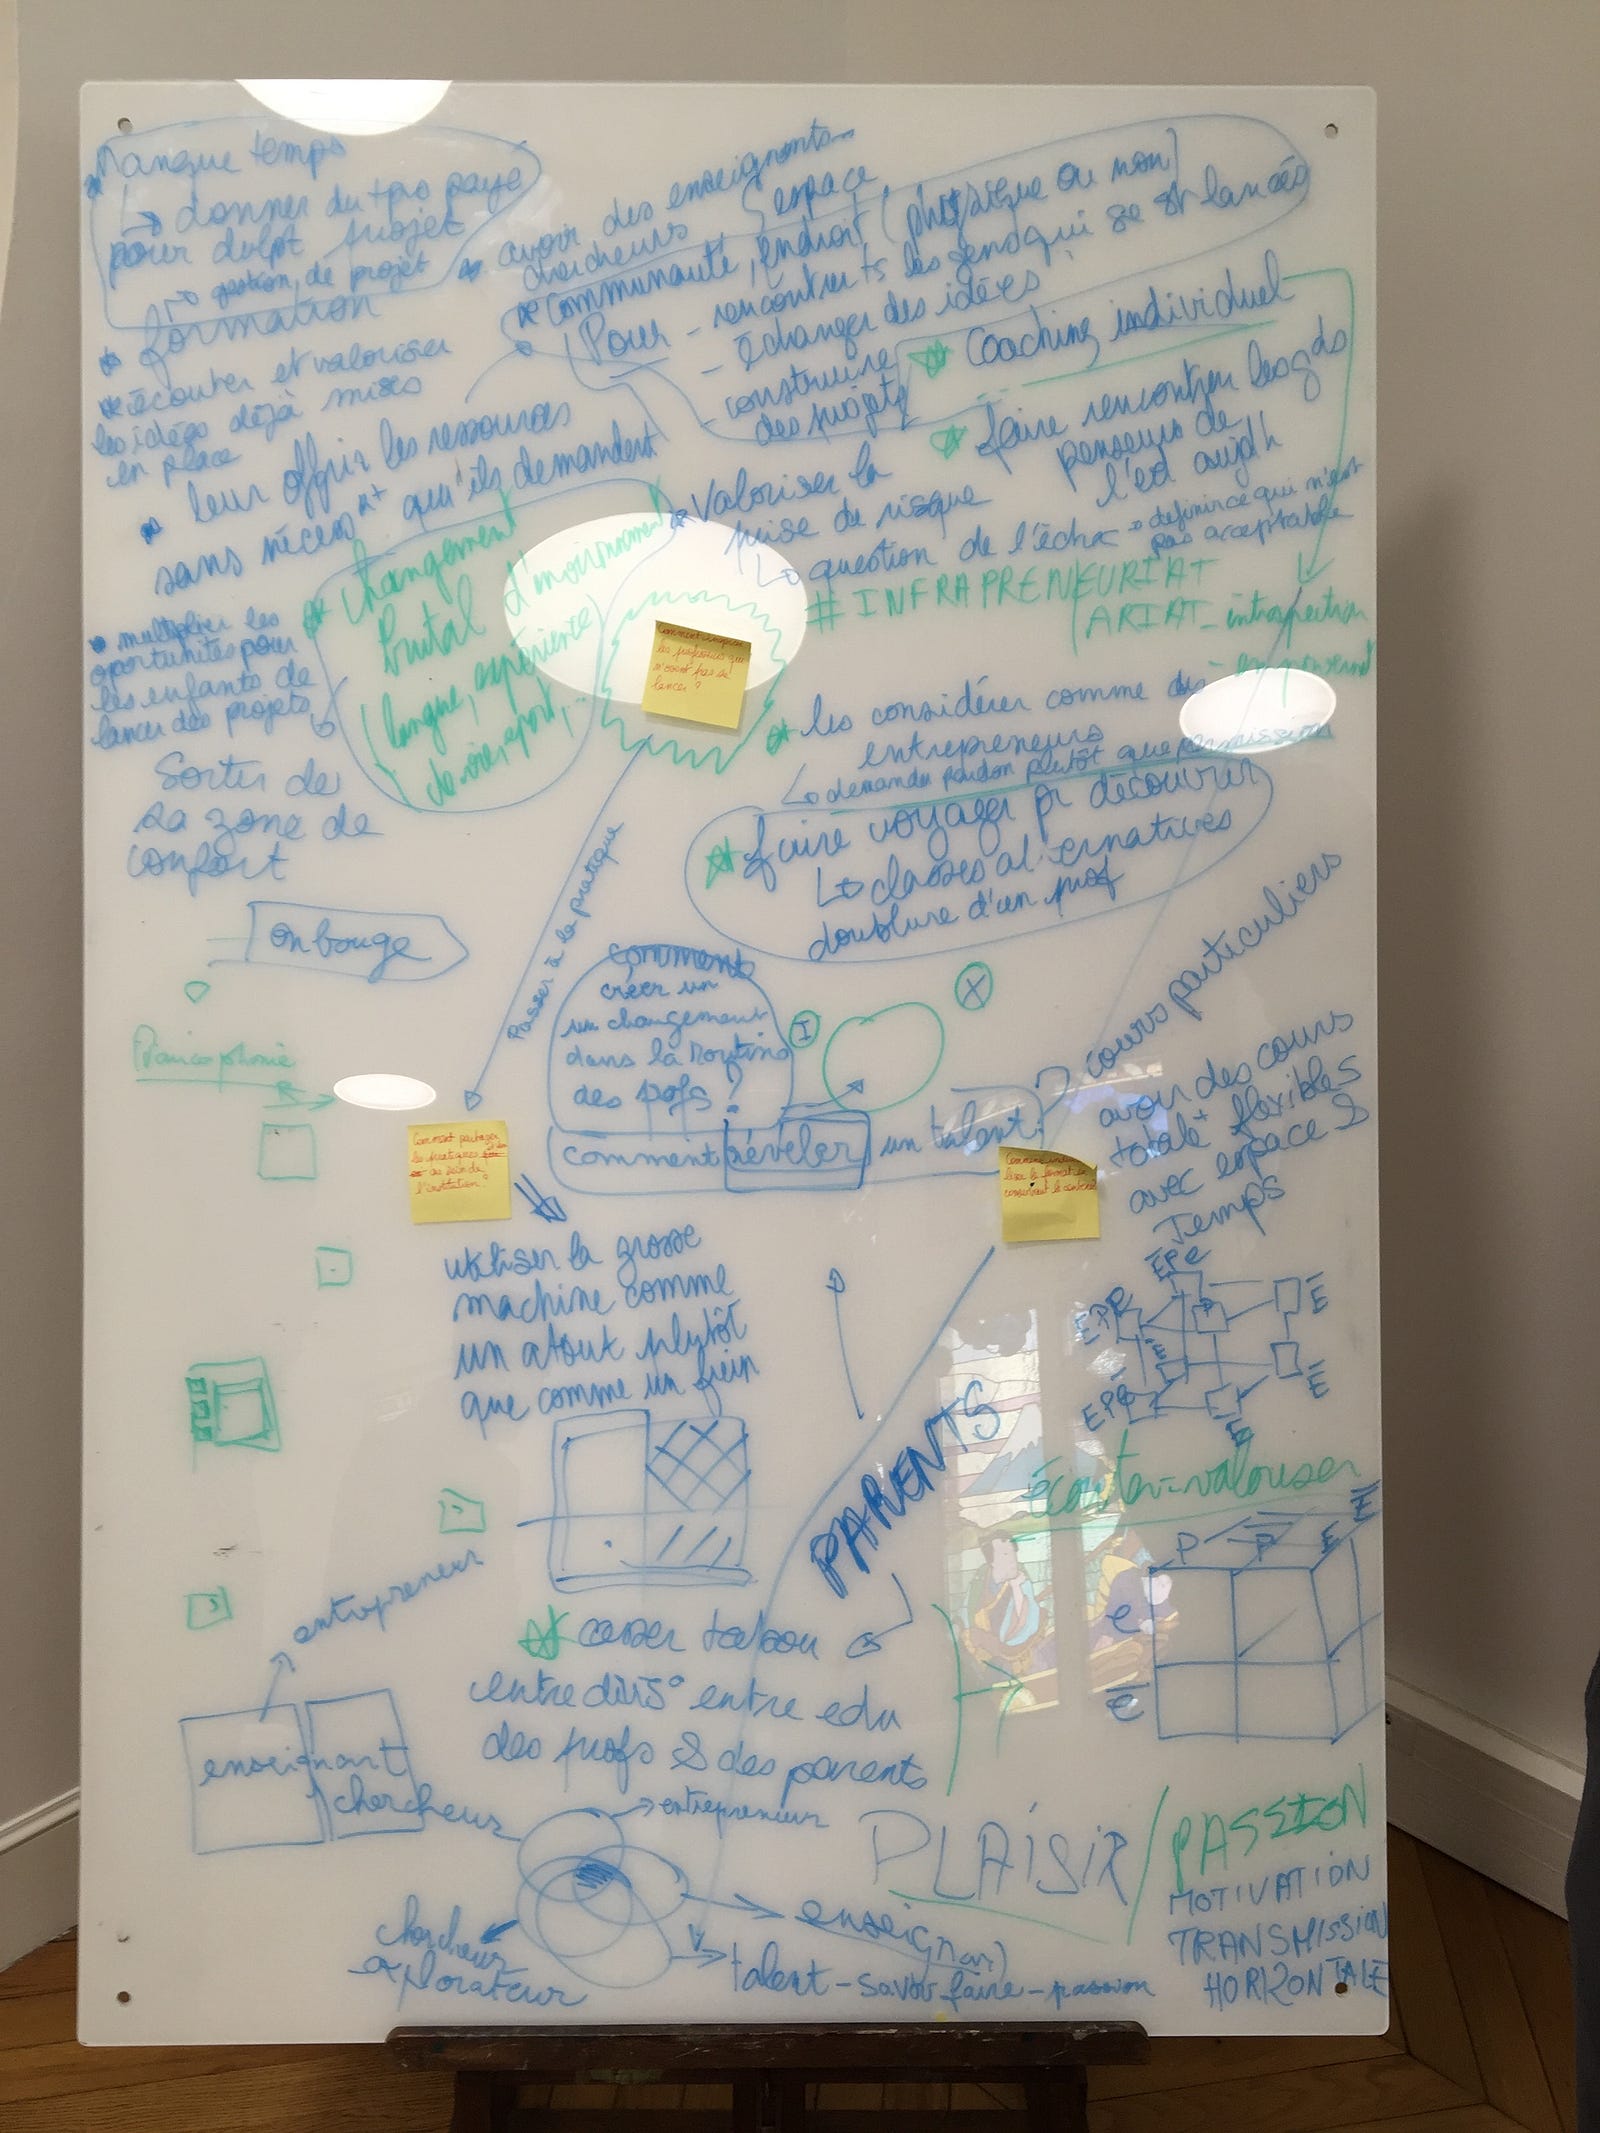 Manque temps
↳ donner du tps payé
pour dvlpt projet
↳ gestion de projet
* formation
* écouter et valoriser
les idées déjà mises
en place
* leur offrir les ressources
qu'ils demandent
sans
* multiplier les
oportunités pour
les enfants de
lancer des projets
Sortir de
sa zone de
confort
on bouge
Francophonie
* avoir des enseignants
chercheurs
espace
* communauté, endroit (physique ou non)
Pour - rencontrer les gens qui se st lancés
- échanger des idées
- construire
des projets
* Coaching individuel
* faire rencontrer les gds
penseurs de
l'éd aujd'h
* Valoriser la
prise de risque
↳ question de l'échec → définir ce qui n'est
pas acceptable
# INFRAPRENEURIAT
ARIAT - introspection
* changement
brutal d'environnement
(langue, expérience
de vie, sport, ...
les professeurs qui
n'osent pas se
lancer ?
* les considérer comme des
entrepreneurs
↳ demander pardon plutôt que permission
* faire voyager pr découvrir
↳ classes alternatives
doublure d'un prof
Passer à la pratique
comment
créer un
un changement
dans la routine
des profs ?
I
X
comment révéler un talent
cours particuliers
avoir des cours
totale+ flexibles
avec espace &
Temps
Comment partager
les pratiques
au sein de
l'institution ?
utiliser la grosse
machine comme
un atout plutôt
que comme un frein
EPE
EPR
E
E
PARENTS
écouter-valoriser
P P E E
e
e
* casser tabou
entre edu
des profs & des parents
entrepreneur
enseignant
chercheur
→ entrepreneur
enseignant
chercheur
explorateur
talent - savoir faire - passion
PLAISIR / PASSION
MOTIVATION
TRANSMISSION
HORIZONTALE